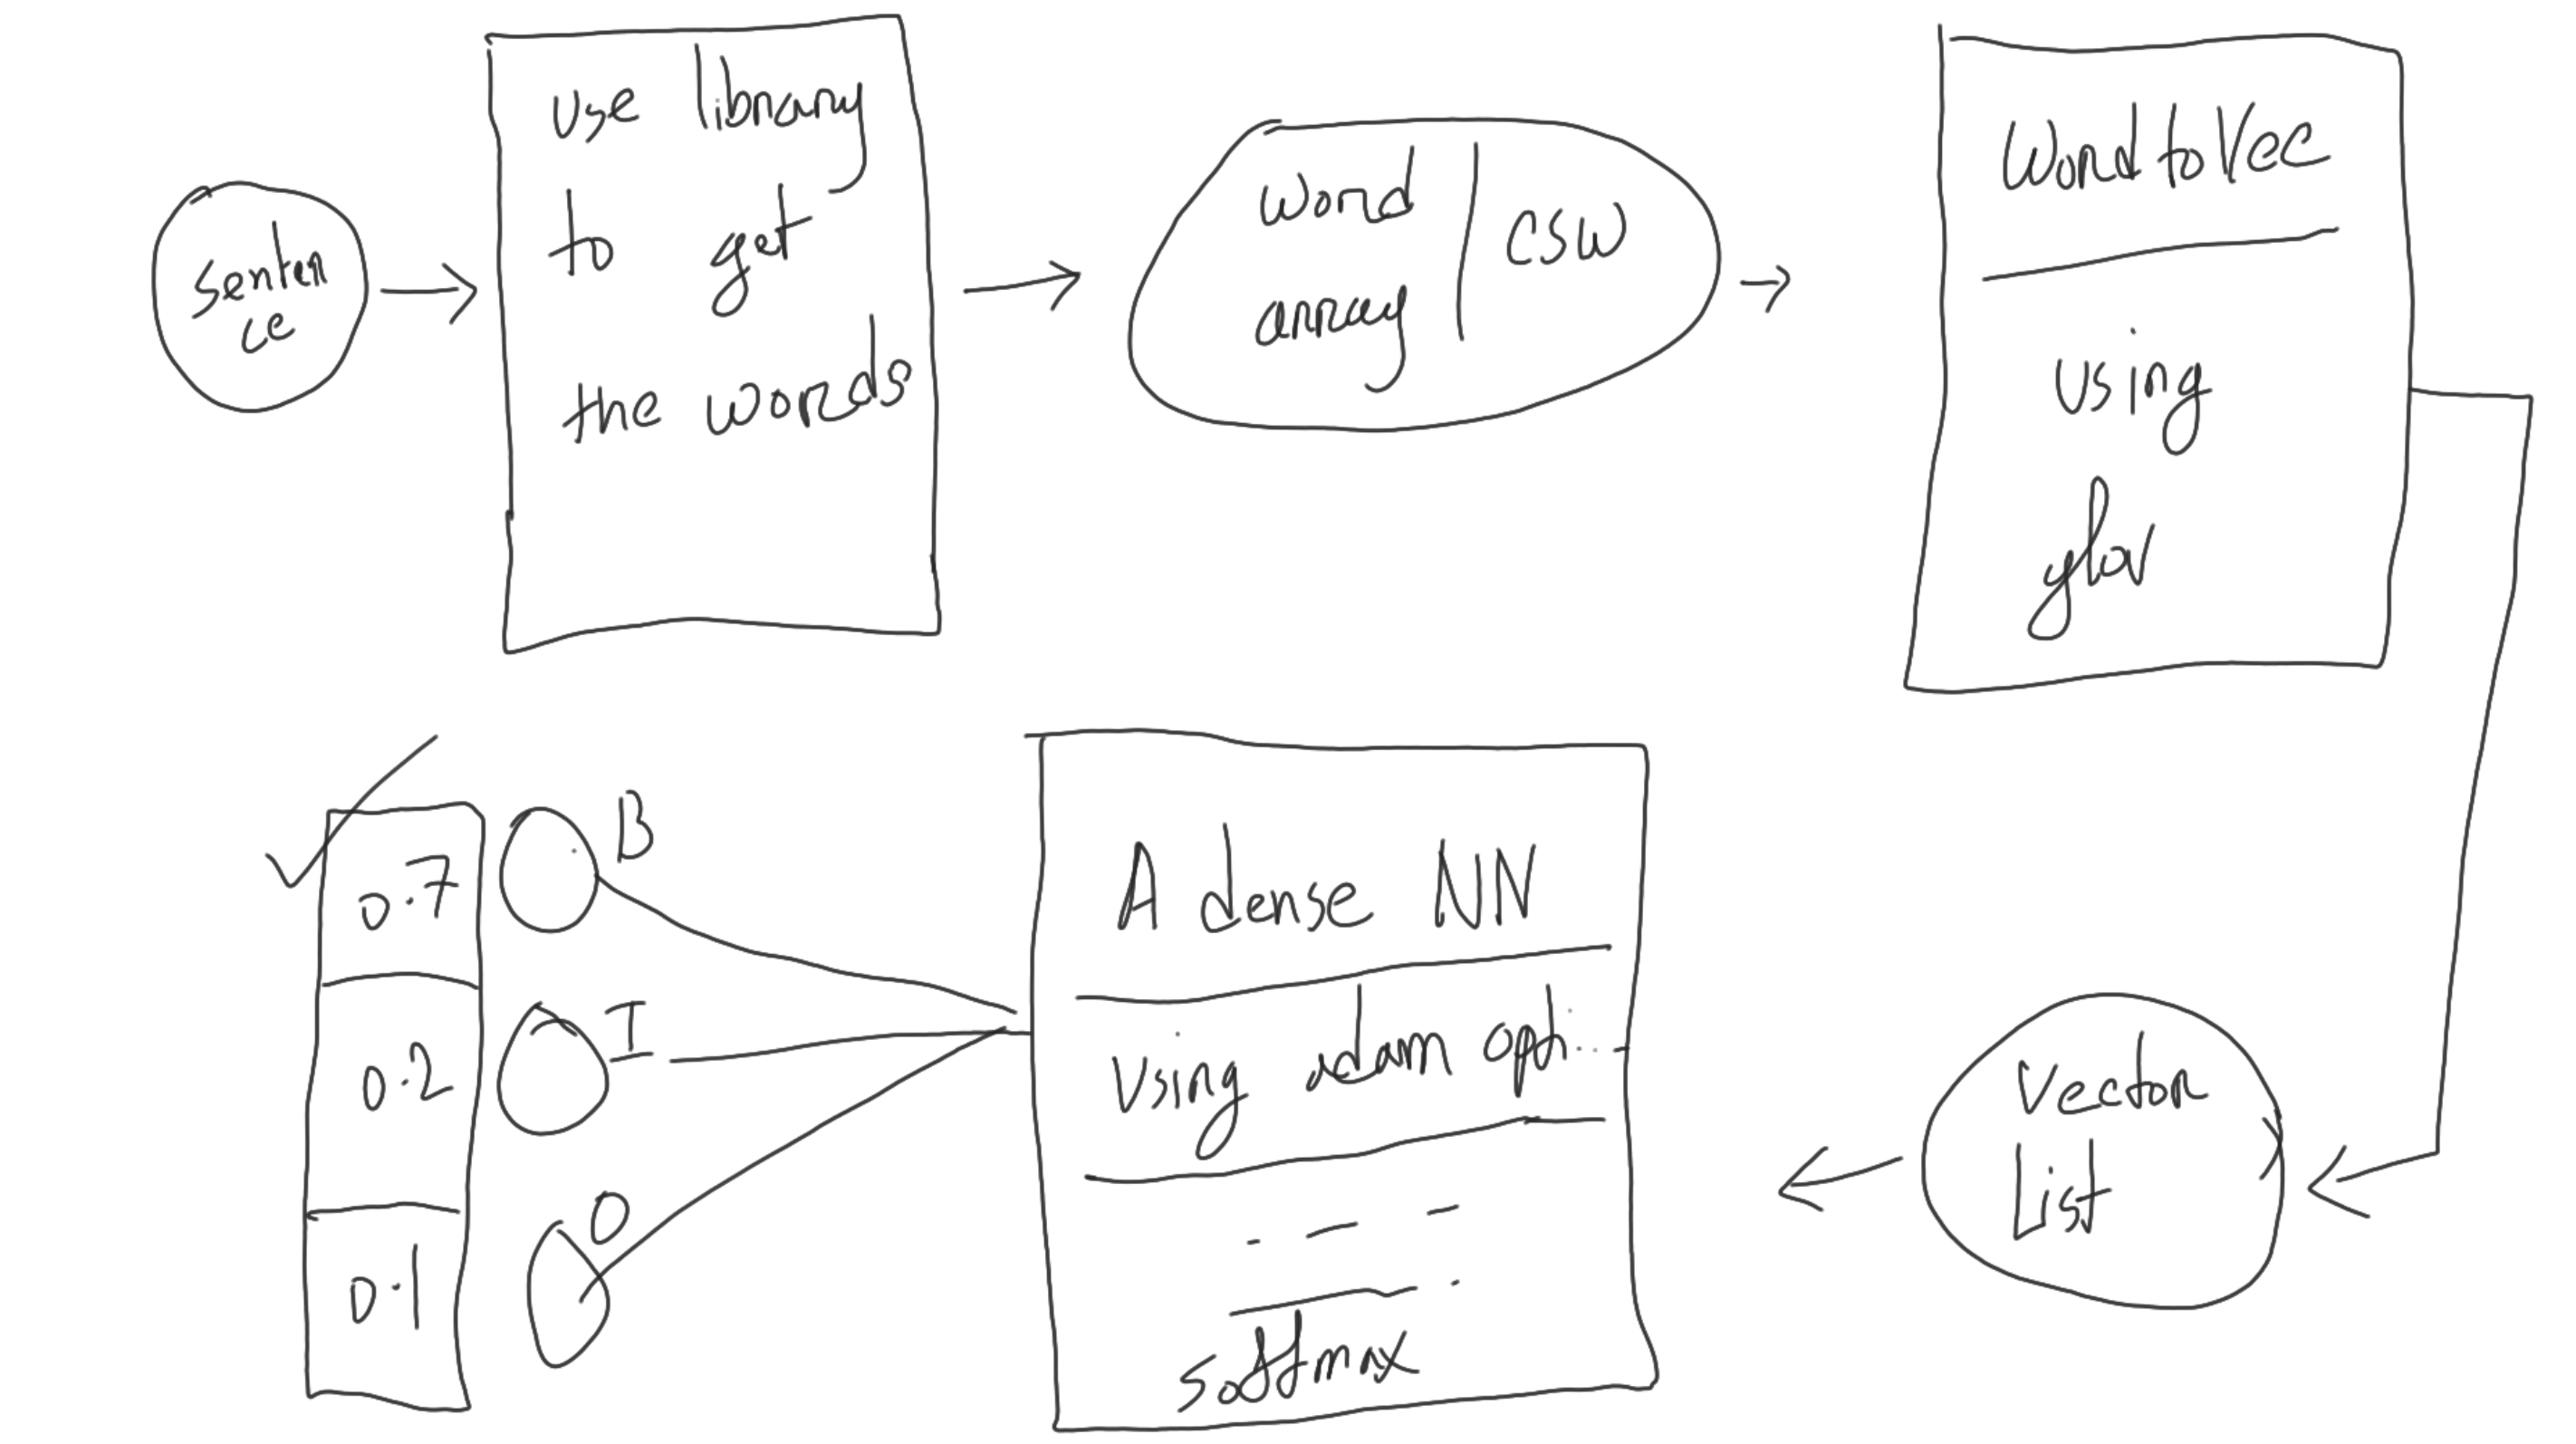 senten
ce
use library
to get
the words
word
array
CSW
Word to Vec
using
glov
Vector
List
A dense NN
Using adam opti...
softmax
B
0.7
I
0.2
O
0.1